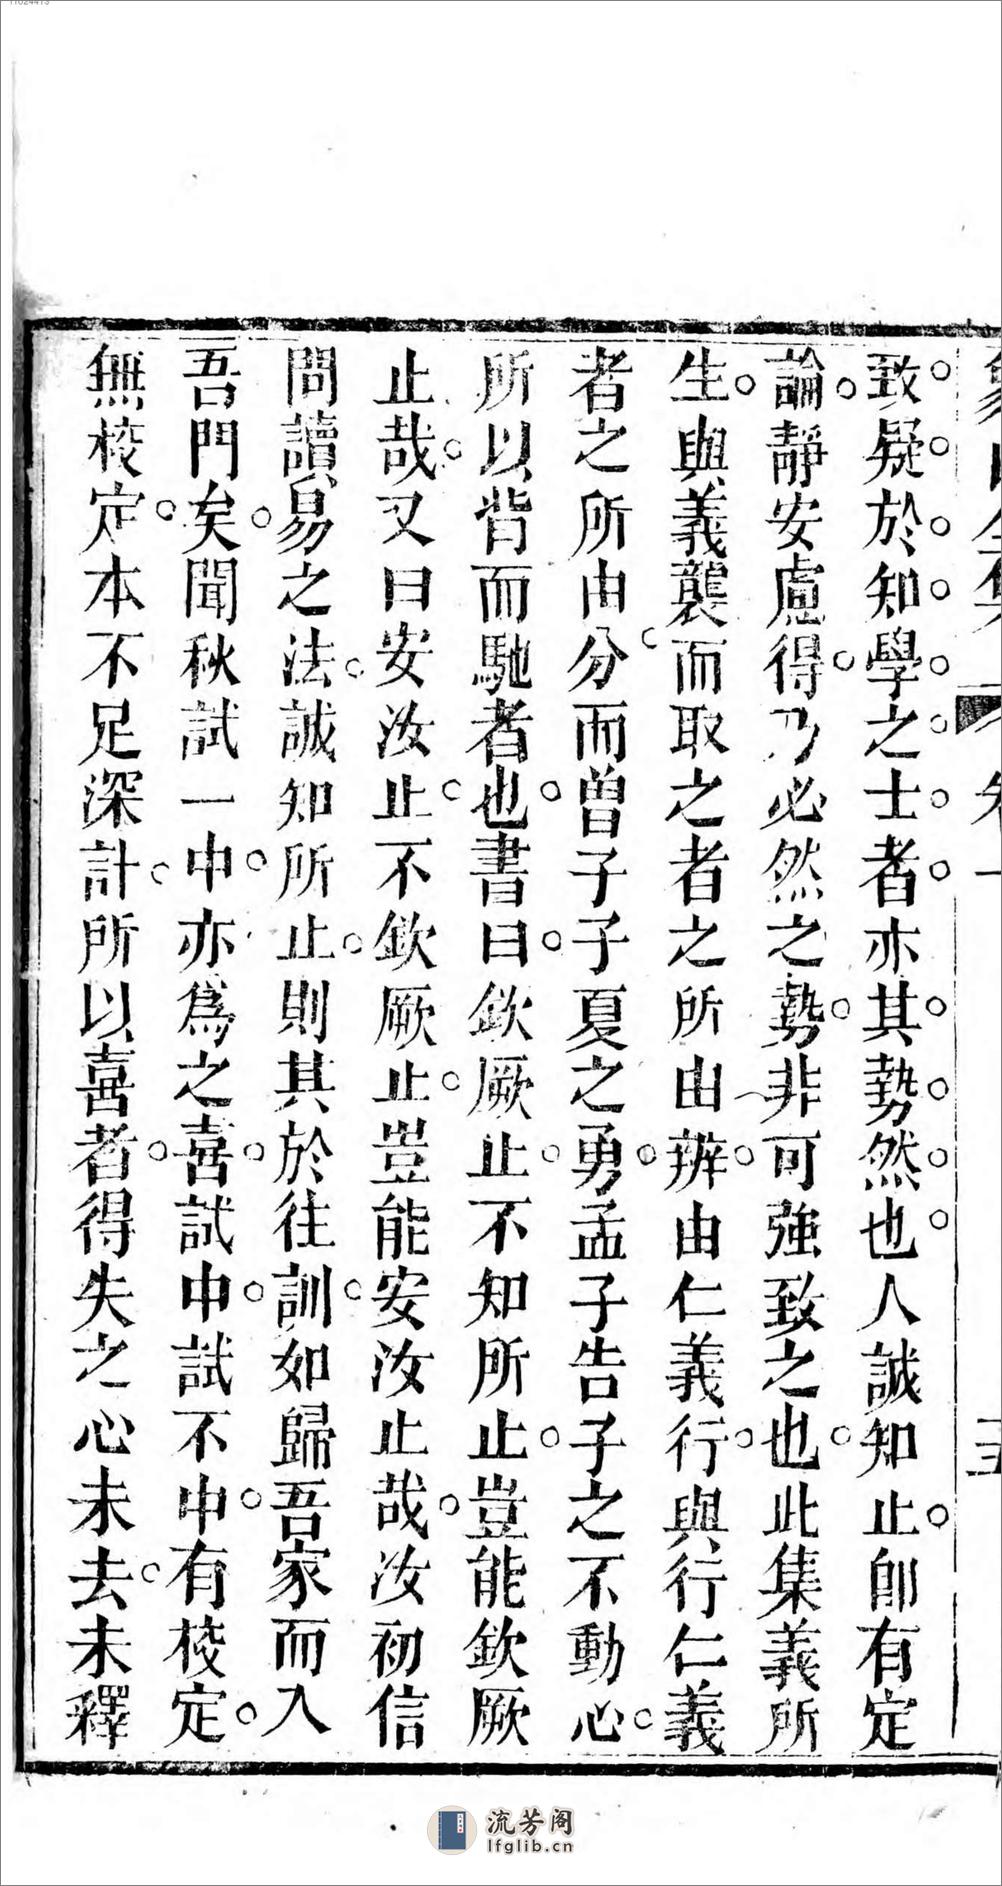 致疑於知學之士者亦其勢然也人誠知止卽有定
論靜安慮得乃必然之勢非可強致之也此集義所
生與義襲而取之者之所由辨由仁義行與行仁義
者之所由分而曾子子夏之勇孟子告子之不動心
所以背而馳者也書曰欽厥止不知所止豈能欽厥
止哉又曰安汝止不欽厥止豈能安汝止哉汝初信
問讀易之法誠知所止則其於往訓如歸吾家而入
吾門矣聞秋試一中亦爲之喜試中試不中有校定
無校定本不足深計所以喜者得失之心未去未釋
流芳阁
lfglib.cn